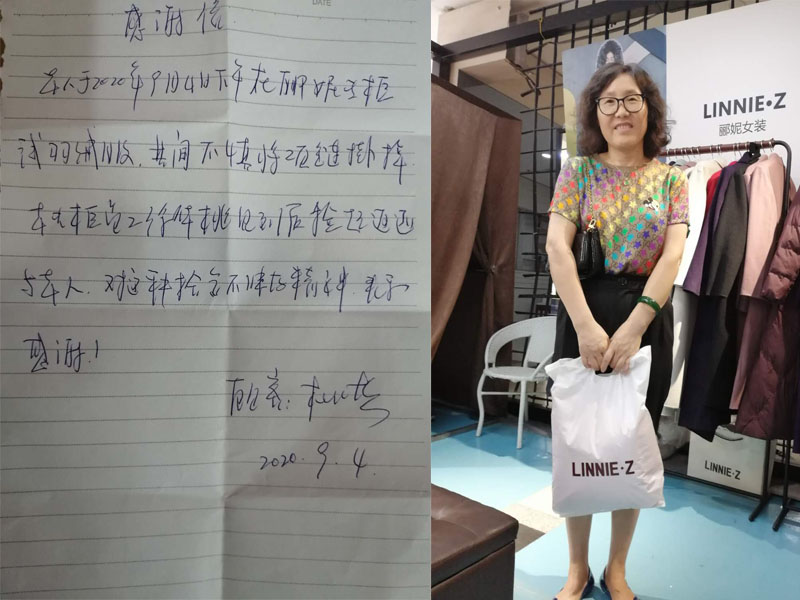 DATE
感谢信
本人于2020年9月4日下午在丽妮专柜
试羽绒服，其间不慎将项链掛掉
本专柜员工 捡起
与本人，对这种拾金不昧的精神，表示
感谢！
顾客：
2020.9.4
LINNIE·Z
郦妮女装
LINNIE·Z
LINNIE·Z